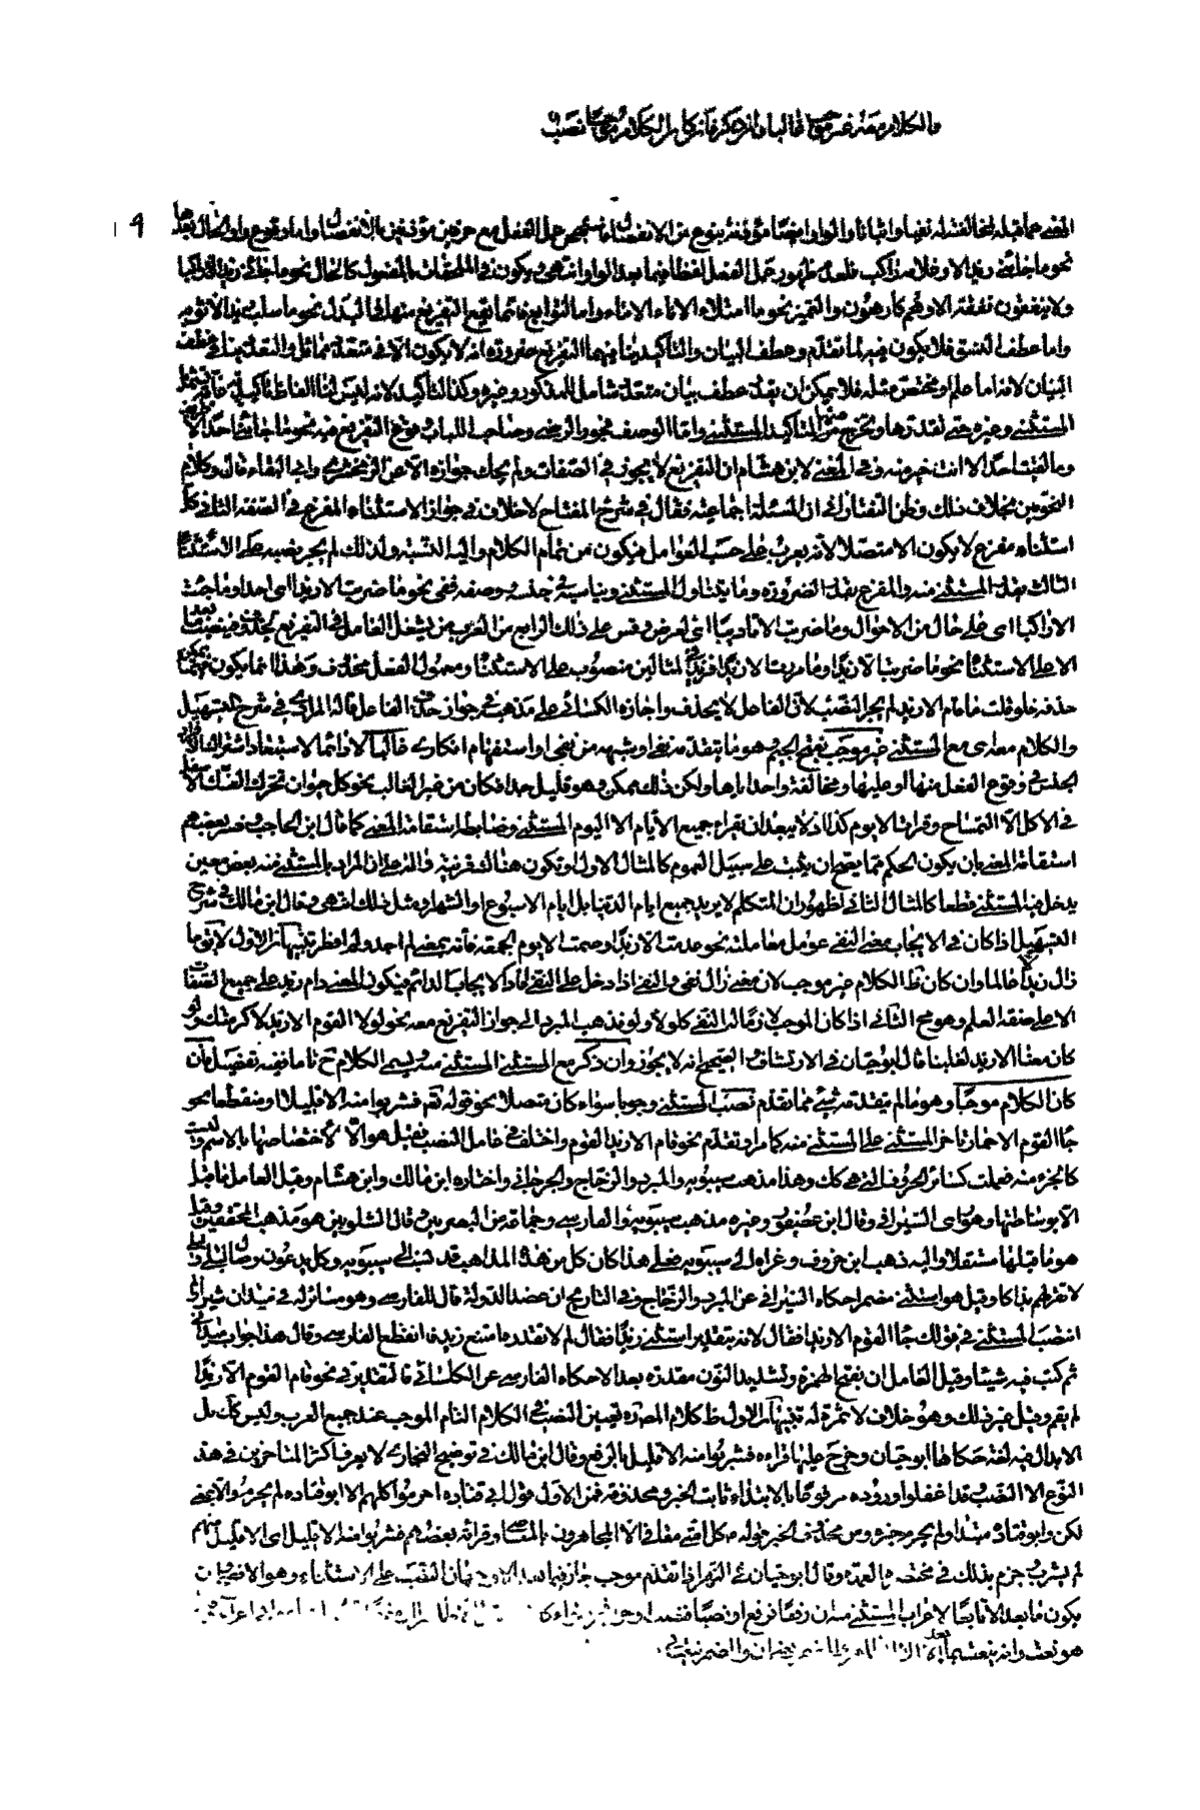 والكلام معه غير موجب غالبا وان ذكر فان كان الكلام موجبا نصب
٩
المعنى عما قبله لمخالفته له نفيا واثباتا والواو ايضا مؤذنة بنوع من الانفصال
نحو ما جاءني زيد الا وغلامه راكب فلعدم ظهور عمل الفعل لفظا فيما بعد الواو انتهى ويكون في الملحقات بالمفعول كالحال نحو ما جاءني زيد الا راكبا
ولا ينفقون نفقة الا وهم كارهون والتمييز نحو ما امتلأ الاناء الا ماء واما التوابع فانما يقع التفريغ منها في البدل نحو ما سلب زيد الا ثوبه
واما عطف النسق فلا يكون فيه لما تقدم وعطف البيان والتاكيد ينافيهما التفريغ ضرورة انه لا يكون الا في متعدد
البيان لانه اما علم او مختص مثله فلا يمكن ان يقدر عطف بيان متعدد شامل للمذكور وغيره وكذا التاكيد لانه ليس لنا الفاظ تاكيد
المستثنى وغيره حتى نقدرها ونخرج من التاكيد المستثنى واما الوصف فجوز الرضي وصاحب اللباب وقوع التفريغ فيه نحو ما جاءني احد الا ظريف
وما لقيت احدا الا انت خير منه وفي المغني لابن هشام ان التفريغ لا يجوز في الصفات ولم يحك جوازه الا عن الزمخشري وابي البقاء قال وكلام
النحويين بخلاف ذلك وظن التفتازاني ان المسئلة اجماعية فقال في شرح المفتاح لا خلاف في جواز الاستثناء المفرغ في الصفة الثاني كل
استثناء مفرغ لا يكون الا متصلا لانه يعرب على حسب العوامل فيكون من تمام الكلام واليه النسبة ولذلك لم يجز نصبه على الاستثناء
الثالث يقدر المستثنى منه والمفرغ بقدر الضرورة وما يتناول المستثنى ويناسبه في جنسه وصفته ففي نحو ما ضربت الا زيدا اى احدا وما جئت
الا راكبا اى على حال من الاحوال وما ضربت الا تاديبا اى لغرض وقس على ذلك الرابع من العرب من يشغل العامل في التفريغ بمحذوف فينصب ما بعد
الا على الاستثناء نحو ما ضربت الا زيدا وما مررت الا زيدا فزيد في المثالين منصوب على الاستثناء ومعمول الفعل محذوف وهذا انما يكون فيما يمكن
حذفه فلو قلت ما قام الا زيد لم يجز النصب لان الفاعل لا يحذف واجازه الكسائي على مذهبه في جواز حذف الفاعل قاله المرادي في شرح التسهيل
والكلام معرى مع المستثنى غير موجب بفتح الجيم وهو ما تقدمه نفى او شبهه من نهى او استفهام انكارى غالبا لا دائما لاستبعاد اشتراك افراد
الجنس في وقوع الفعل منها او عليها ومخالفة واحد اياها ولكن ذلك ممكن وهو قليل جدا فكان من غير الغالب نحو كل حيوان تحرك الفك الاسفل
في الاكل الا التمساح وقرات الا يوم كذا اذ لا يبعد ان تقراء جميع الايام الا اليوم المستثنى وضابطه استقامة المعنى كما قال ابن الحاجب وفسر بعضهم
استقامة المعنى بان يكون الحكم مما يصح ان يثبت على سبيل العموم كالمثال الاول او تكون هناك قرينة دالة على ان المراد بالمستثنى منه بعض معين
يدخل فيه المستثنى قطعا كالمثال الثاني لظهور ان المتكلم لا يريد جميع ايام الدنيا بل ايام الاسبوع او الشهر او مثل ذلك انتهى وقال ابن مالك في شرح
التسهيل اذا كان في الايجاب معنى النفى عومل معاملته نحو عدمت الا زيدا وصمت الا يوم الجمعة فانه بمعنى لم اجد ولم افطر تنبيهان الاول لا يقع ما
زال زيد الا عالما وان كان ظ الكلام غير موجب لان معنى زال نفى والنفى اذا دخل على النفى افاد الايجاب الدائم فيكون المعنى دام زيد على جميع الصفات
الا على صفة العلم وهو مح الثاني اذا كان الموجب لازما له النفى كلولا ولو فذهب المبرد الى جواز التفريغ معه نحو لولا القوم الا زيد لاكرمتك ولو
كان معنا الا زيد لغلبنا قال ابو حيان في الارتشاف والصحيح انه لا يجوز وان ذكر مع المستثنى المستثنى منه ويسمى الكلام ح تاما ففيه تفصيل فان
كان الكلام موجبا وهو ما لم يتقدمه شئ مما تقدم نصب المستثنى وجوبا سواء كان متصلا نحو قوله تعم فشربوا منه الا قليلا او منقطعا نحو
جاء القوم الا حمارا تاخر المستثنى على المستثنى منه كما مر او تقدم نحو قام الا زيدا القوم واختلف في عامل النصب فقيل هو الا لاختصاصها بالاسم وليست
كالجزء منه فعملت كسائر الحروف التى هى كك وهذا مذهب سيبويه والمبرد والزجاج والجرجاني واختاره ابن مالك وابن هشام وقيل العامل ما قبل
الا بوساطتها وهو راى السيرافي وقال ابن عصفور وغيره مذهب سيبويه والفارسي وجماعة من البصريين وقال الشلوبين هو مذهب المحققين وقيل
هو ما قبلها مستقلا واليه ذهب ابن خروف وعزاه الى سيبويه فعلى هذا كان كل من هذه المذاهب قد نسب الى سيبويه وكل يدعون وصال ليلى وليلى
لا تقر لهم بذاكا وقيل هو استثنى مضمرا حكاه السيرافي عن المبرد والزجاج وفي التاريخ ان عضد الدولة قال للفارسي وهو مسائره في ميدان شيراز لم
انتصب المستثنى في قولك جاء القوم الا زيدا فقال لانه بتقدير استثنى زيدا فقال لم لا تقدره امتنع زيد فانقطع الفارسي وقال هذا جواب ميداني
ثم كتب فيه شيئا وقيل العامل ان بفتح الهمزة وتشديد النون مقدرة بعد الا حكاه الفارسي عن الكسائي فالتقدير في نحو قام القوم الا زيدا
لم يقم وقيل غير ذلك وهو خلاف لا ثمرة له تنبيهان الاول ظ كلام المص ره تعين النصب في الكلام التام الموجب عند جميع العرب وليس كك بل
الابدال فيه لغة حكاها ابو حيان وخرج عليها قراءة فشربوا منه الا قليل بالرفع وقال ابن مالك في توضيح البخارى لا يعرف اكثر المتاخرين في هذ
النوع الا النصب وقد اغفلوا وروده مرفوعا بالابتداء ثابت الخبر ومحذوفه فمن الاول قول ابي قتادة احرموا كلهم الا ابو قتادة لم يحرم والا بمعنى
لكن وابو قتادة مبتدا ولم يحرم خبره ومن محذوف الخبر قوله ص كل امتي معافى الا المجاهرون بالمعاصي وقراءة بعضهم فشربوا منه الا قليل اى الا قليل منهم
لم يشرب جزم بذلك في العمدة وقال ابو حيان في النهر اذا تقدم موجب جاز فيما بعد الا وجهان النصب على الاستثناء وهو الافصح وان
يكون ما بعد الا تابعا لاعراب المستثنى منه ان رفعا فرفع او نصبا فنصب
هو نعت